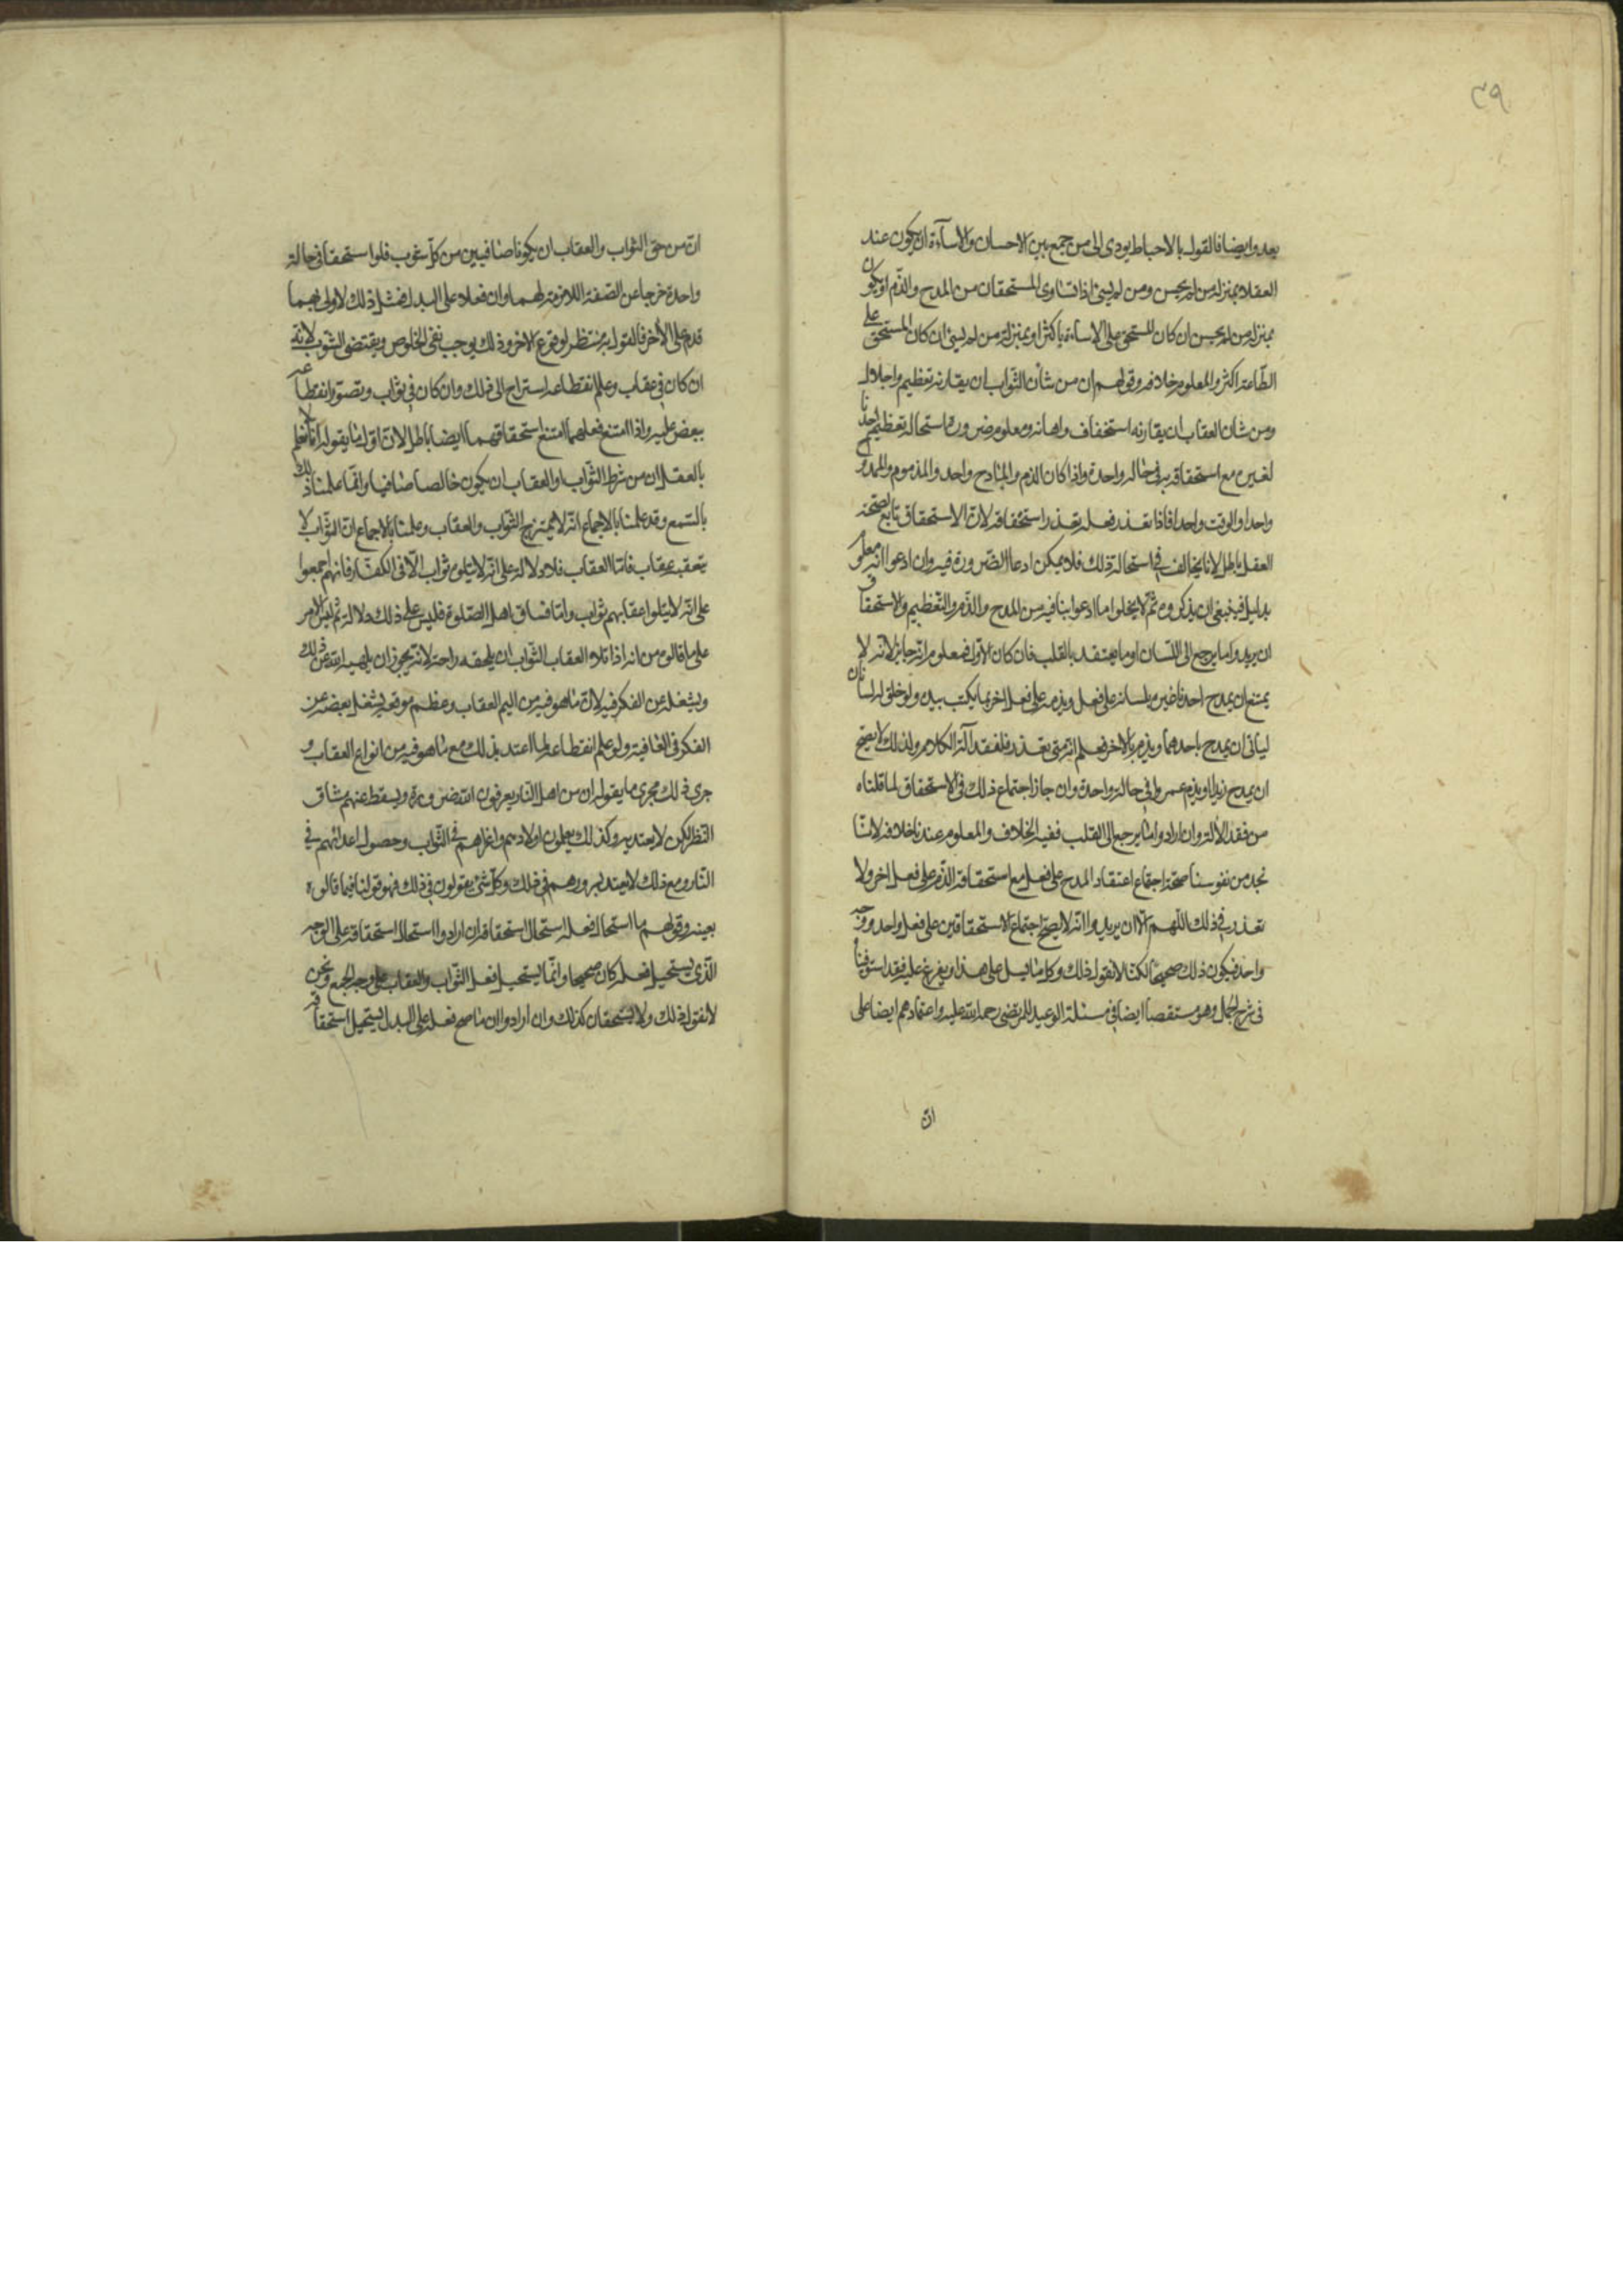 ٣٩
بعد وايضا فالقول بالاحباط يودى الى من جمع بين الاحسان والاساءة ان يكون عند
العقلا بمنزلة من لم يحسن ومن لم يسئ اذا تساوى المستحقان من المدح والذم او يكون
بمنزلة من لم يحسن ان كان المستحق على الاساءة اكثر او بمنزلة من لم يسئ ان كان المستحق على
الطاعة اكثر والمعلوم خلافه وقولهم ان من شان الثواب ان يقارنه تعظيم واجلال
ومن شان العقاب ان يقارنه استخفاف واهانة ومعلوم ضرورة استحالة تعظيم احدنا
لغيره مع استحقاقه به في حالة واحدة واذا كان الذم والمادح واحد والمذموم والممدوح
واحدا والوقت واحدا فاذا تعذر فعله تعذر استحقاقه لان الاستحقاق تابع لصحة
الفعل باطل لانا نخالف في استحالة ذلك فلا يمكن ادعا الضرورة فيه وان ادعوا انه معلوم
بدليل فينبغى ان يذكروه ثم لا يخلوا ما ادعوا تنافيه من المدح والذم والتعظيم والاستحقاق
ان يريدوا ما يرجع الى اللسان او ما يعتقد بالقلب فان كان الاول فمعلوم انه جايز لانه لا
يمتنع ان يمدح احدنا غيره بلسانه على فعل ويذمه على فعل اخر بما يكتب بيده ولو خلق له لسانان
ليأتى ان يمدح باحدهما ويذم بالاخر فعلم انه متى تعذر فلفقد آلة الكلام ولذلك لا يصح
ان يمدح زيدا ويذم عمروا في حالة واحدة وان جاز اجتماع ذلك في الاستحقاق لما قلناه
من فقد الالة وان ارادوا ما يرجع الى القلب ففيه الخلاف والمعلوم عندنا خلافه لاننا
نجد من نفوسنا صحة اجتماع اعتقاد المدح على فعل مع استحقاقه الذم على فعل اخر ولا
تعذر في ذلك اللهم الا ان يريدوا انه لا يصح اجتماع الاستحقاقين على فعل واحد ووجه
واحد فيكون ذلك صحيحا لكنا لا نقول ذلك وكلما يسل على هذا ويفرغ عليه فقد استوفيناه
فى شرح الجمل وهو مستقصا ايضا في مسئلة الوعيد للمرتضى رحمة الله عليه واعتمادهم ايضا على
ان
ان من حق الثواب والعقاب ان يكونا صافيين من كل شوب فلو استحقا في حالة
واحدة خرجا عن الصفة اللازمة لهما وان فعلا على البدل فمثل ذلك لاولى بهما
قدم على الاخر فالمقول به منتظر لوقوع الاخر وذلك يوجب نفى الخلوص ويقتضى الشوب لانه
ان كان في عقاب وعلم انقطاعه استراح الى ذلك وان كان في ثواب وتصور انقطاعه
ببعض عليه واذا امتنع فعلهما امتنع استحقاقهما ايضا باطل لان اول ما يقوله انا لا نعلم
بالعقل ان من شرط الثواب او العقاب ان يكون خالصا صافيا وانما علمنا ذلك
بالسمع وقد علمنا بالاجماع انه لا يمتزج الثواب والعقاب وعلمنا بالاجماع ان الثواب لا
يتعقبه عقاب فاما العقاب فلا دلالة على انه لا يتلوه ثواب الا في الكفار فانهم اجمعوا
على انه لا يتلوا عقابهم ثواب واما فساق اهل الصلوة فليس على ذلك دلالة ثم ليس الامر
على ما قالوه من انه اذا تلاه العقاب الثواب ان يلحقه راحة لانه يجوز ان يلهيه الله عن ذلك
ويشغله عن الفكر فيه لان ما هو فيه من اليم العقاب وعظم موقعه يشغل بعضه عن
الفكر فى العافية ولو علم انقطاعه لما اعتد بذلك مع ما هو فيه من انواع العقاب و
جرى ذلك مجرى ما يقوله ان من اهل النار يعرفون الله ضرورة ويسقط عنهم مشاق
النظر لكن لا يعتد به وكذلك يعلمون اولادهم واعزاهم في الثواب وحصول اعدائهم في
النار ومع ذلك لا يعتد بسرورهم في ذلك وكل شئ يقولون في ذلك فهو قولنا فيما قالوه
بعينه وقولهم ما استحال فعله استحال استحقاقه ان ارادوا استحال استحقاقه على الوجه
الذى يستحيل فعله كان صحيحا وانما يستحيل فعل الثواب والعقاب على وجه الجمع ونحن
لا نقول ذلك ولا يستحقان كذلك وان ارادوا ان ما صح فعله على البدل يستحيل استحقاقه